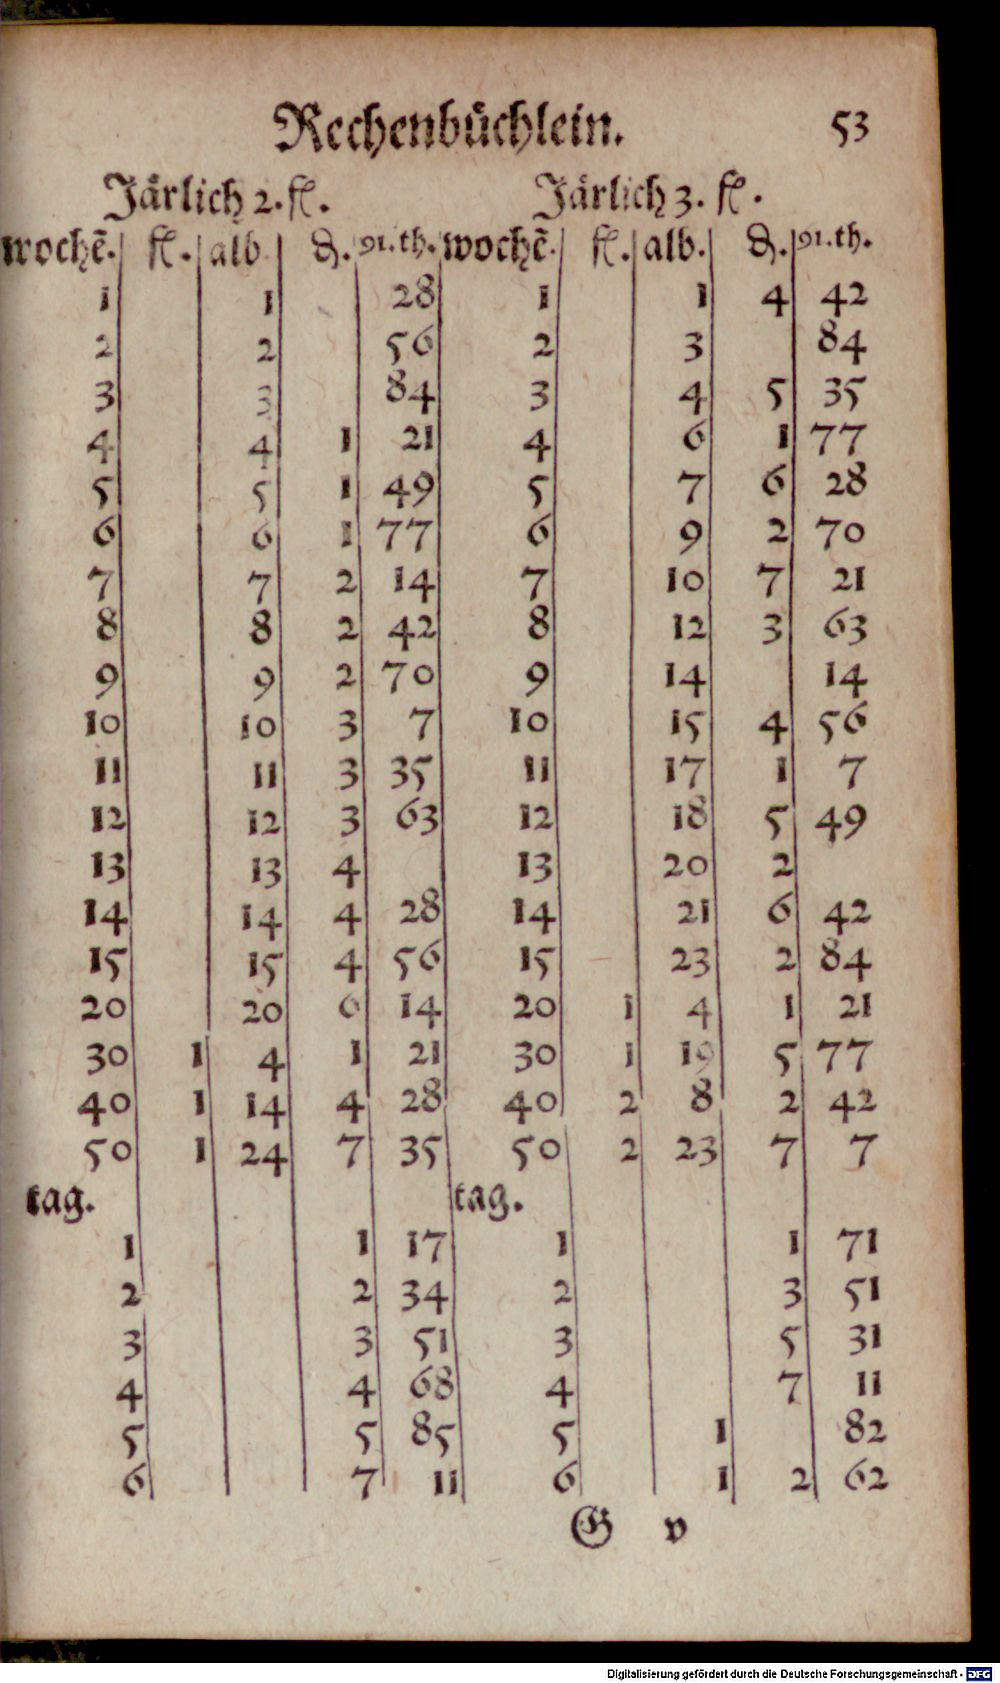 Rechenbüchlein. 53
Järlich 2. fl. Järlich 3. fl.
wochē. fl. alb. ₰. 91.th. wochē. fl. alb. ₰. 91.th.
1 1 28 1 1 4 42
2 2 56 2 3 84
3 3 84 3 4 5 35
4 4 1 21 4 6 1 77
5 5 1 49 5 7 6 28
6 6 1 77 6 9 2 70
7 7 2 14 7 10 7 21
8 8 2 42 8 12 3 63
9 9 2 70 9 14 14
10 10 3 7 10 15 4 56
11 11 3 35 11 17 1 7
12 12 3 63 12 18 5 49
13 13 4 13 20 2
14 14 4 28 14 21 6 42
15 15 4 56 15 23 2 84
20 20 6 14 20 1 4 1 21
30 1 4 1 21 30 1 19 5 77
40 1 14 4 28 40 2 8 2 42
50 1 24 7 35 50 2 23 7 7
tag. tag.
1 1 17 1 1 71
2 2 34 2 3 51
3 3 51 3 5 31
4 4 68 4 7 11
5 5 85 5 1 82
6 7 11 6 1 2 62
G v
Digitalisierung gefördert durch die Deutsche Forschungsgemeinschaft - DFG